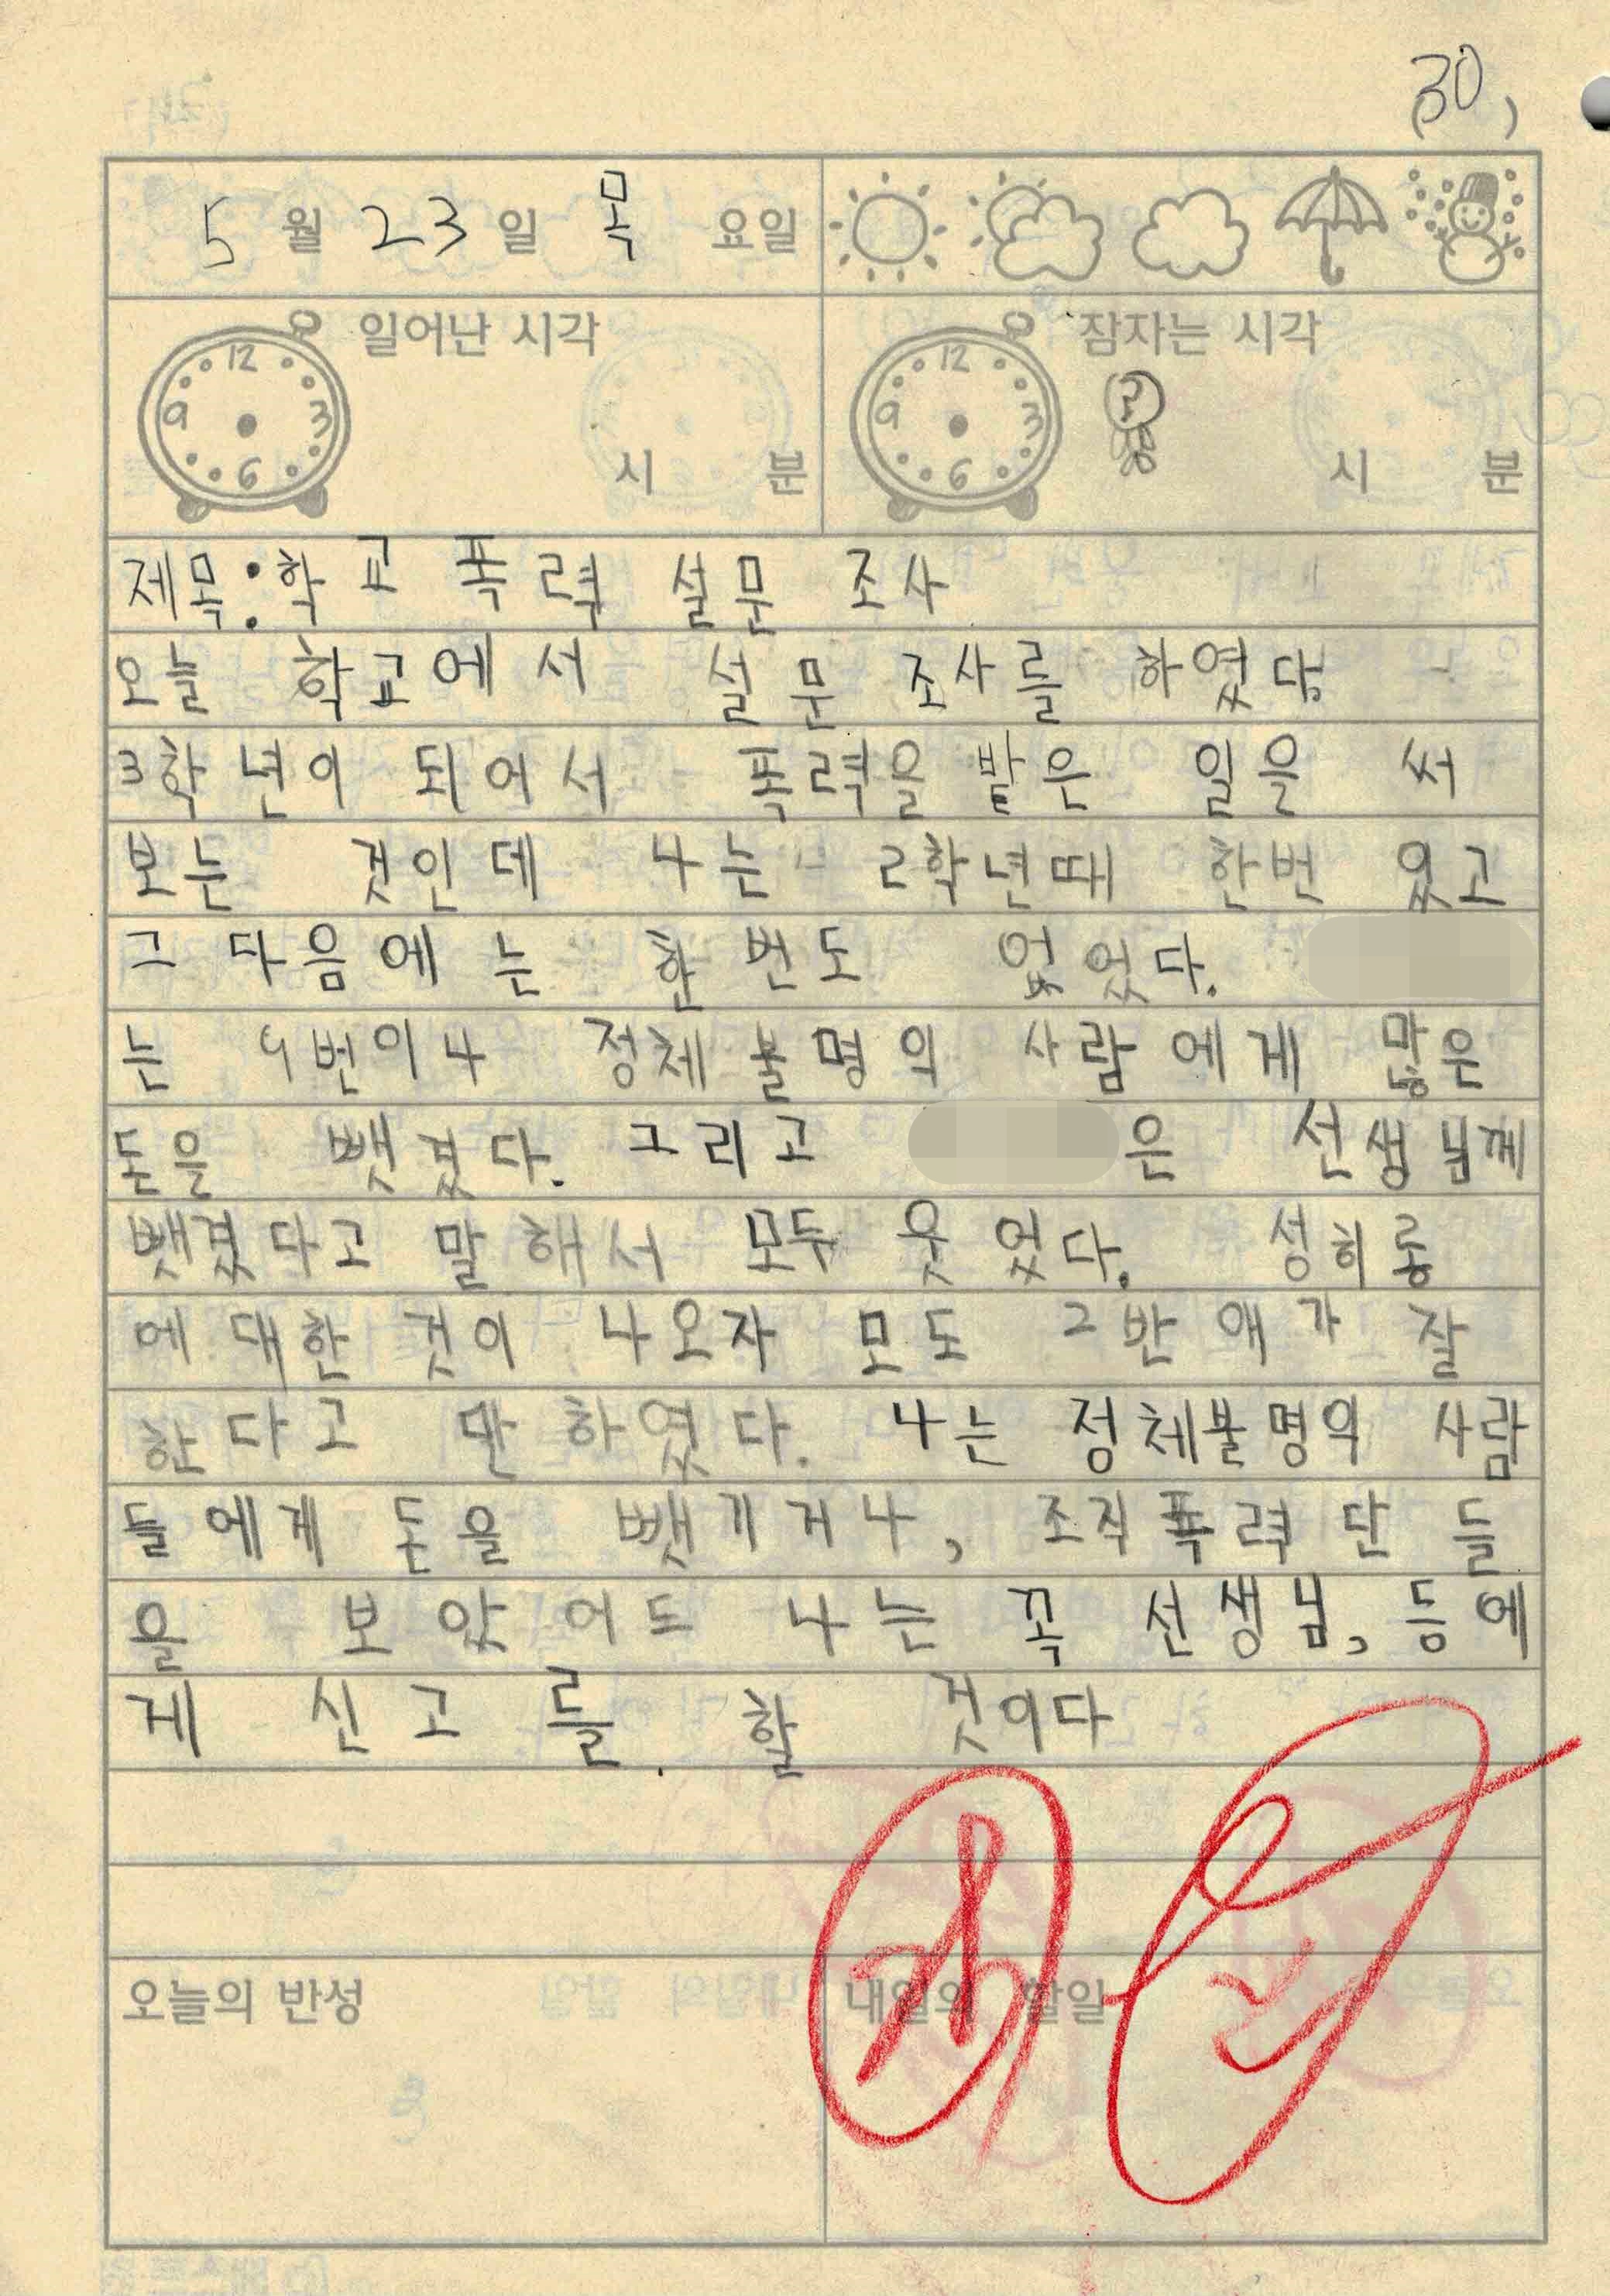 (30)
5 월 23 일 목 요일
일어난 시각 잠자는 시각
12 3 6 9 12 3 6 9
시 분 시 분
제목:학교 폭력 설문 조사
오늘 학교에서 설문 조사를 하였다.
3학년의 되어서 폭력을 받은 일을 써
보는 것인데 나는 2학년때 한번 있고
그 다음에는 한 번도 없었다.
는 4번이나 정체 불명의 사람에게 많은
돈을 뺏겼다. 그리고 은 선생님께
뺏겼다고 말해서 모두 웃었다. 성희롱
에 대한 것이 나오자 모도 2반 애가 잘
한다고 말하였다. 나는 정체불명의 사람
들에게 돈을 뺏기거나, 조직폭력단들
을 보았어도 나는 꼭 선생님, 등에
게 신고를 할 것이다
오늘의 반성 내일의 할일